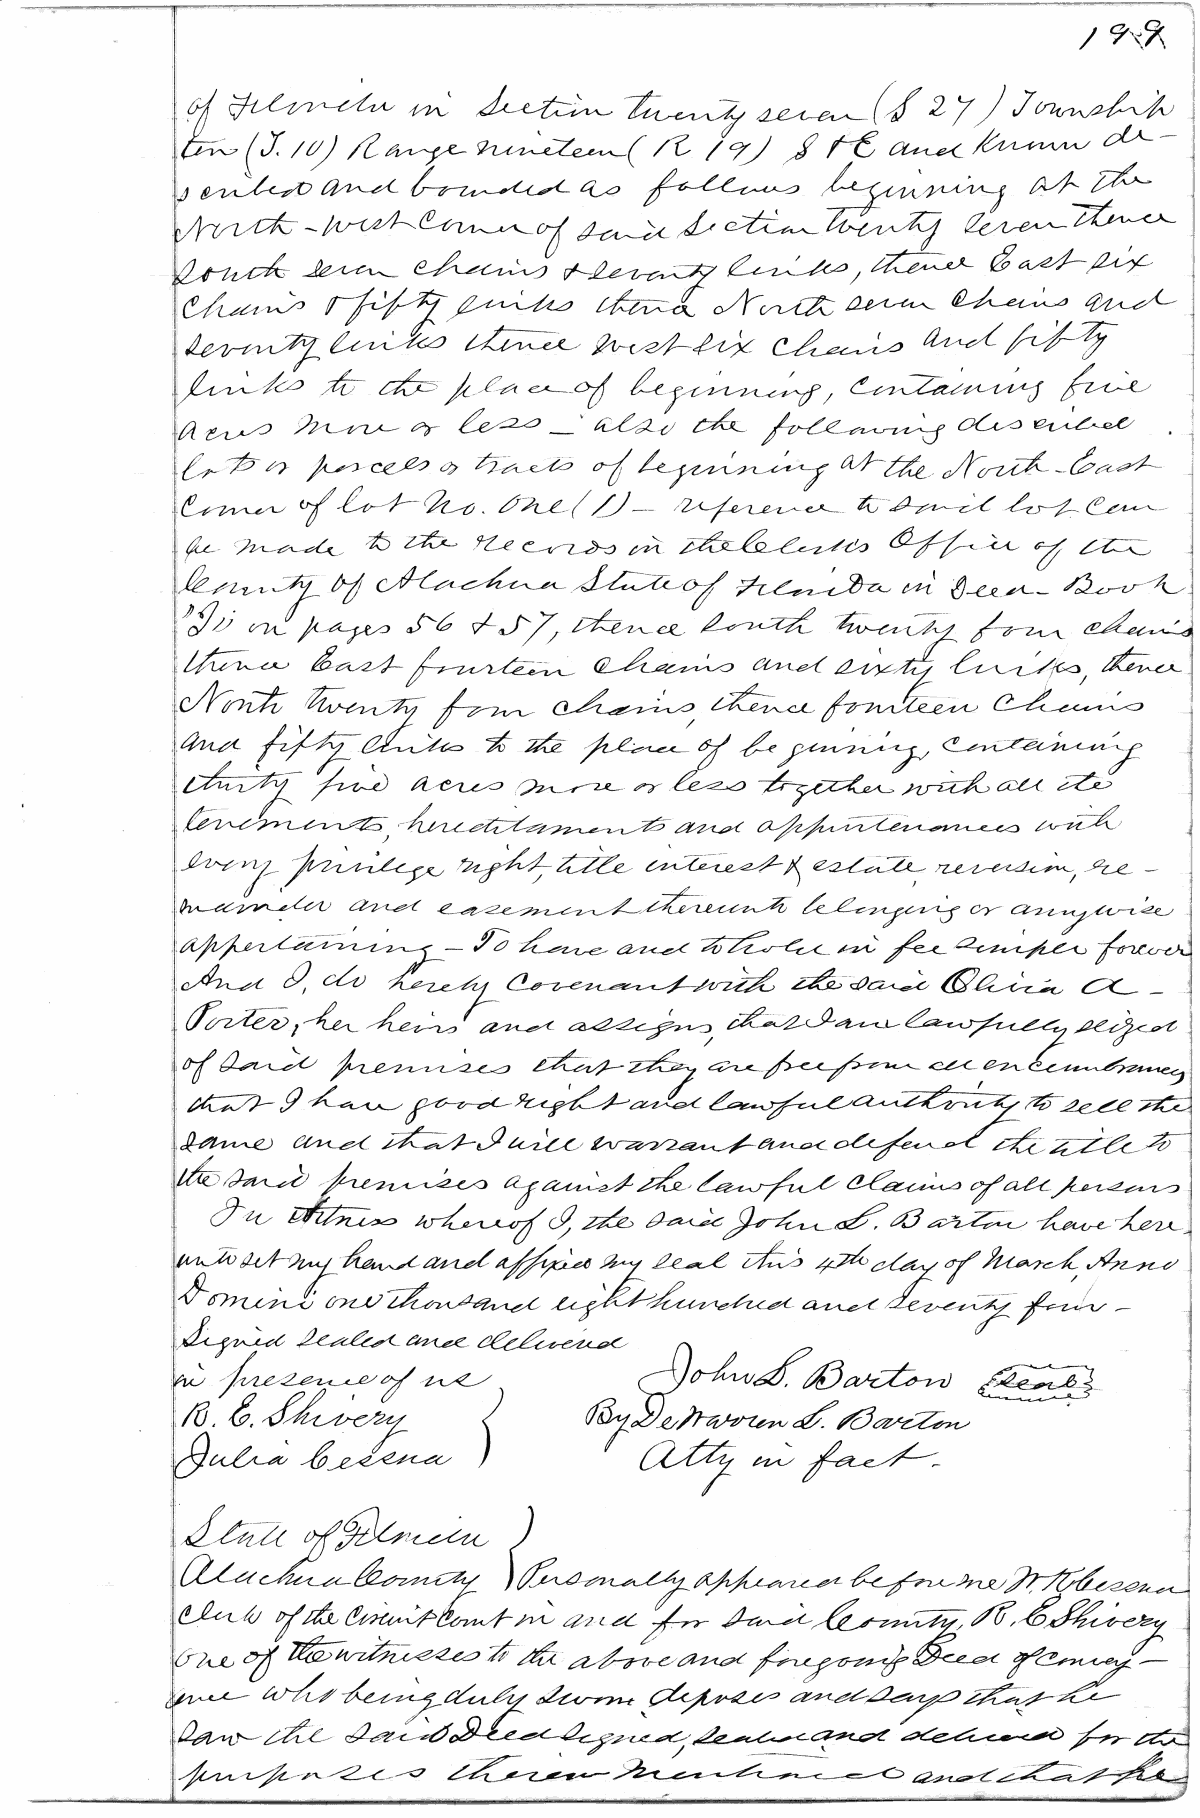 199
of Florida in Section twenty seven (S 27) Township
ten (T. 10) Range nineteen (R 19) S & E and known de-
scribed and bounded as follows beginning at the
North-West Corner of said Section twenty seven thence
South seven chains & seventy links, thence East six
Chains & fifty links thence North seven Chains and
seventy links thence West six Chains and fifty
links to the place of beginning, Containing five
acres more or less - also the following described
lots or parcels or tracts of beginning at the North-East
Corner of lot No. One (1) - reference to said lot can
be made to the records in the Clerk's Office of the
County of Alachua State of Florida in Deed-Book
on pages 56 & 57, thence South twenty four chains
thence East fourteen Chains and sixty links, thence
North twenty four chains, thence fourteen Chains
and fifty links to the place of beginning, Containing
thirty five acres more or less together with all the
tenements, hereditaments and appurtenances with
every privilege right, title interest & estate reversion, re-
mainder and easement thereunto belonging or annywise
appertaining - To have and to hold in fee simple forever
And I, do hereby Covenant with the said Olivia A -
Porter, her heirs and assigns, that I am lawfully seized
of said premises that they are free from all encumbrances
that I have good right and lawful authority to sell the
same and that I will warrant and defend the title to
the said premises against the lawful claims of all persons
In Witness whereof I, the said John L. Barton have here
unto set my hand and affixed my seal this 4th day of March, Anno
Domini one thousand eight hundred and seventy four -
Signed sealed and delivered
in presence of us John L. Barton Seal
R. E. Shivery By DeWarren L. Barton
Julia Cessna Atty in fact.
State of Florida
Alachua County Personally appeared before me W. K. Cessna
Clerk of the Circuit Court in and for said County, R. E Shivery
one of the witnesses to the above and foregoing Deed of convey-
ance who being duly sworn deposes and says that he
saw the said Deed signed, sealed and delivered for the
purposes therein mentioned and that he